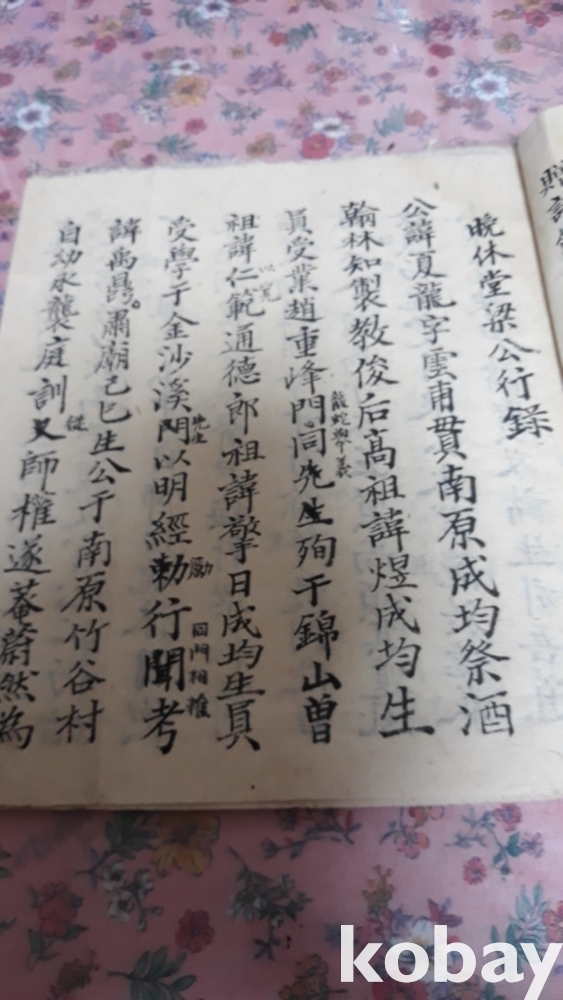 晩休堂梁公行錄
公諱夏龍字雲甫貫南原成均祭酒
翰林知製教俊后高祖諱煜成均生
員受業趙重峰門同先生殉于錦山曽
龍蛇擧義
祖諱仁範通德郎祖諱擎日成均生員
以
受學于金沙溪門以明經勅行聞考
先生
勵
同門相推
諱禹
肅廟己巳生公于南原竹谷村
自幼承襲庭訓又師權遂菴蔚然為
從
贈
kobay